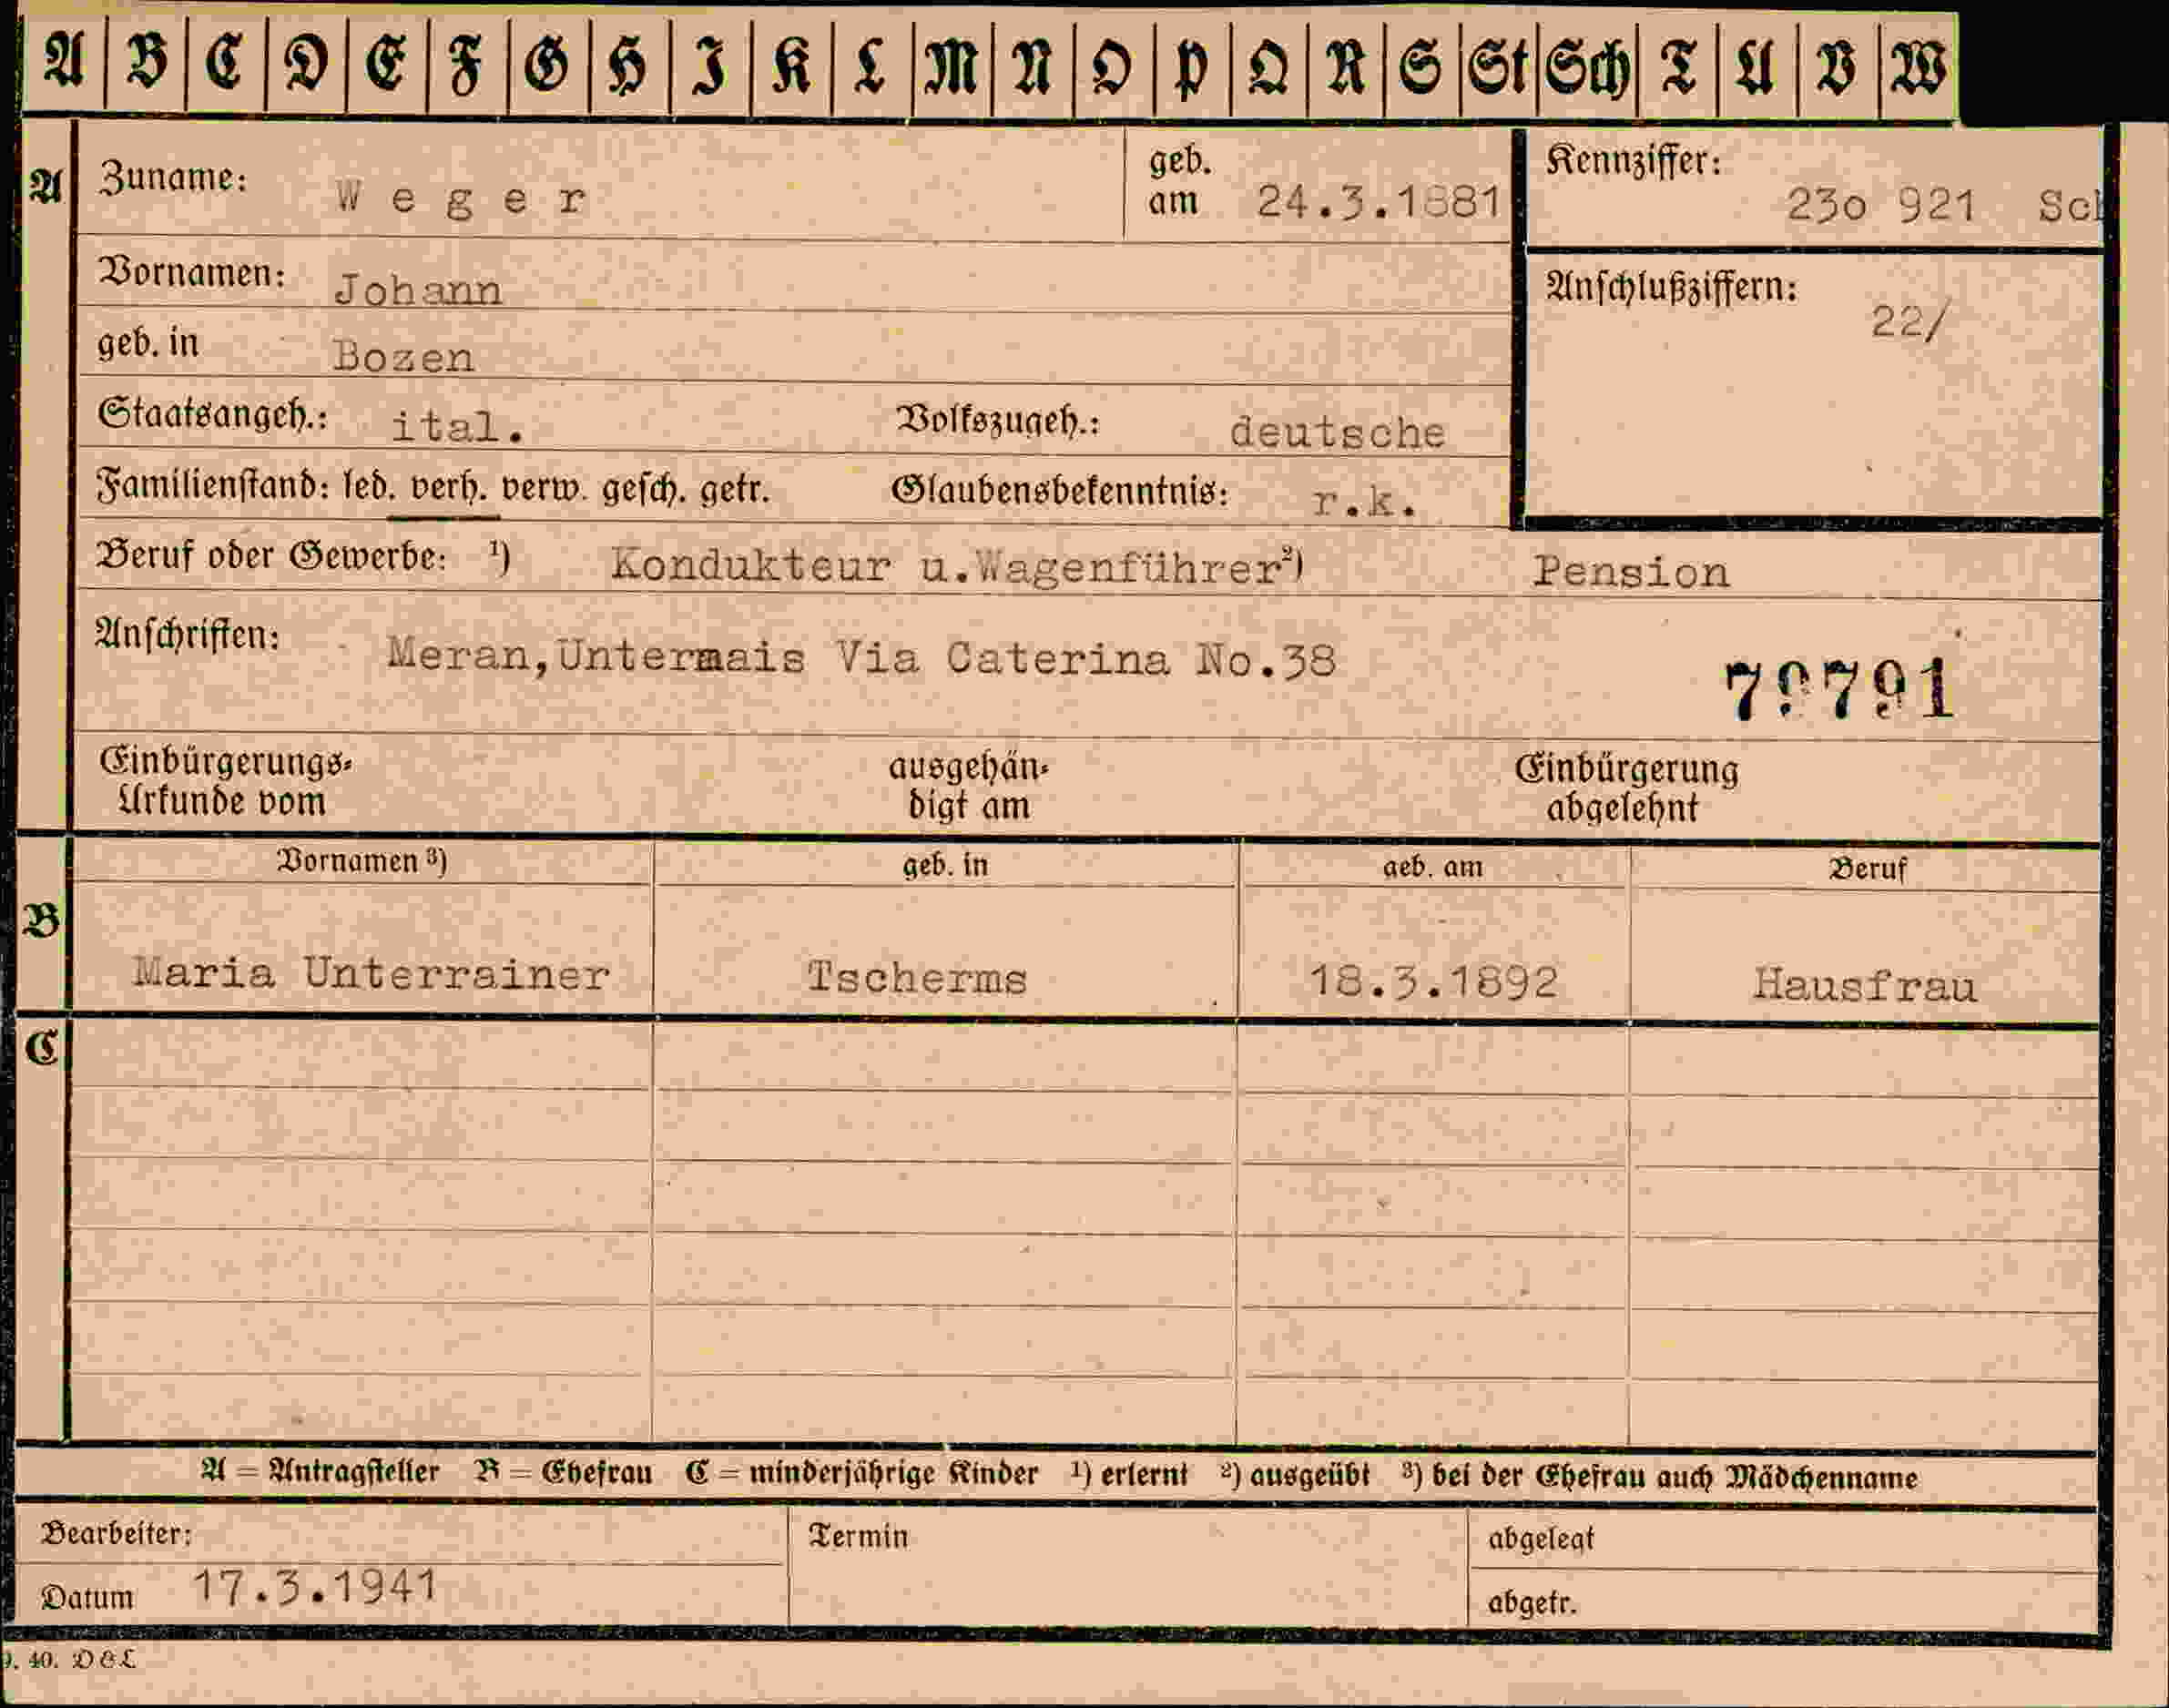 A B C D E F G H I K L M N O P Q R S St Sch T U V W
A Zuname: Weger geb. am 24.3.1881 Kennziffer: 23o 921 Sch
Vornamen: Johann Anschlußziffern: 22/
geb. in Bozen
Staatsangeh.: ital. Volkszugeh.: deutsche
Familienstand: led. verh. verw. gesch. getr. Glaubensbekenntnis: r.k.
Beruf oder Gewerbe: ¹) Kondukteur u.Wagenführer ²) Pension
Anschriften: Meran,Untermais Via Caterina No.38
79791
Einbürgerungs-Urkunde vom ausgehändigt am Einbürgerung abgelehnt
B Vornamen ³) geb. in geb. am Beruf
Maria Unterrainer Tscherms 18.3.1892 Hausfrau
C
A = Antragsteller B = Ehefrau C = minderjährige Kinder ¹) erlernt ²) ausgeübt ³) bei der Ehefrau auch Mädchenname
Bearbeiter: Termin abgelegt
Datum 17.3.1941 abgetr.
9. 40. D&L